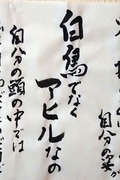 自分の姿が
白鳥でなく
アヒルなの
自分の頭の中では